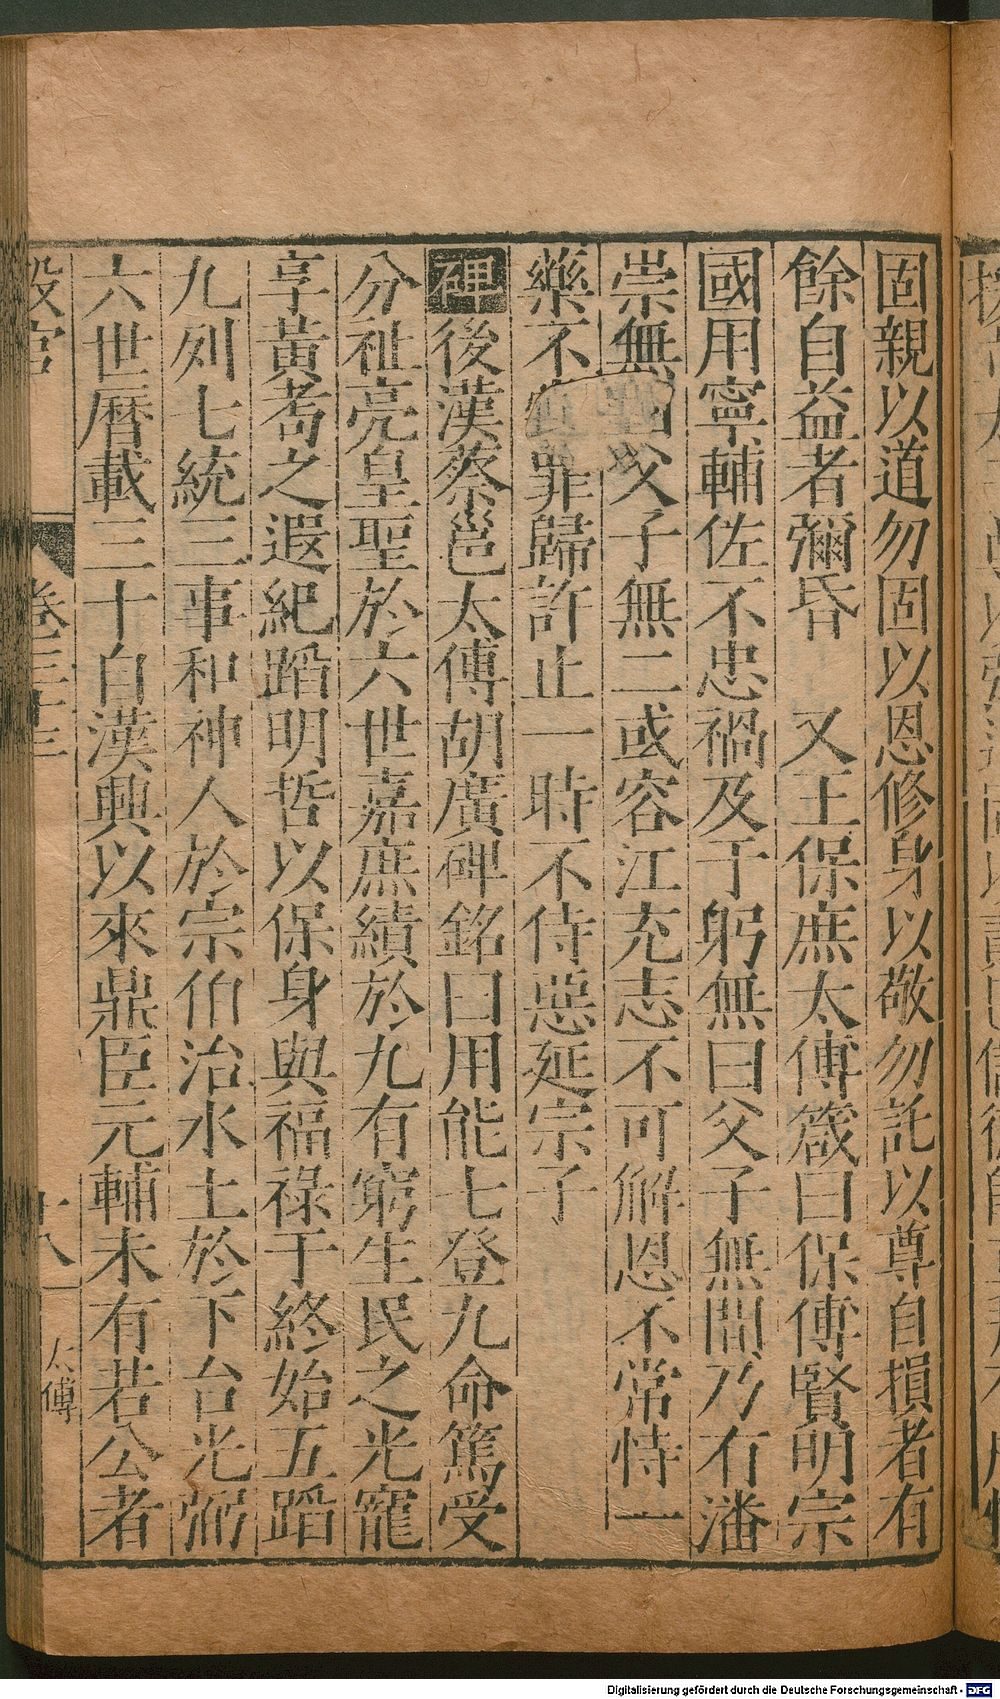 固親以道勿固以恩修身以敬勿託以尊自損者有
餘自益者彌昏 又王保庶太傅箴曰保傅賢明宗
國用寧輔佐不忠禍及于躬無曰父子無間乃有潘
崇無曰父子無二或容江充志不可解恩不常恃一
藥不罪歸許止一時不侍惡延宗子
碑後漢蔡邕太傅胡廣碑銘曰用能七登九命篤受
分祉亮皇聖於六世嘉庶績於九有窮生民之光寵
享黃耇之遐紀蹈明哲以保身與福祿于終始五蹈
九列七統三事和神人於宗伯治水土於下台光弼
六世曆載三十自漢興以來鼎臣元輔未有若公者
設官
卷三十三
十八
太傅
Digitalisierung gefördert durch die Deutsche Forschungsgemeinschaft - DFG